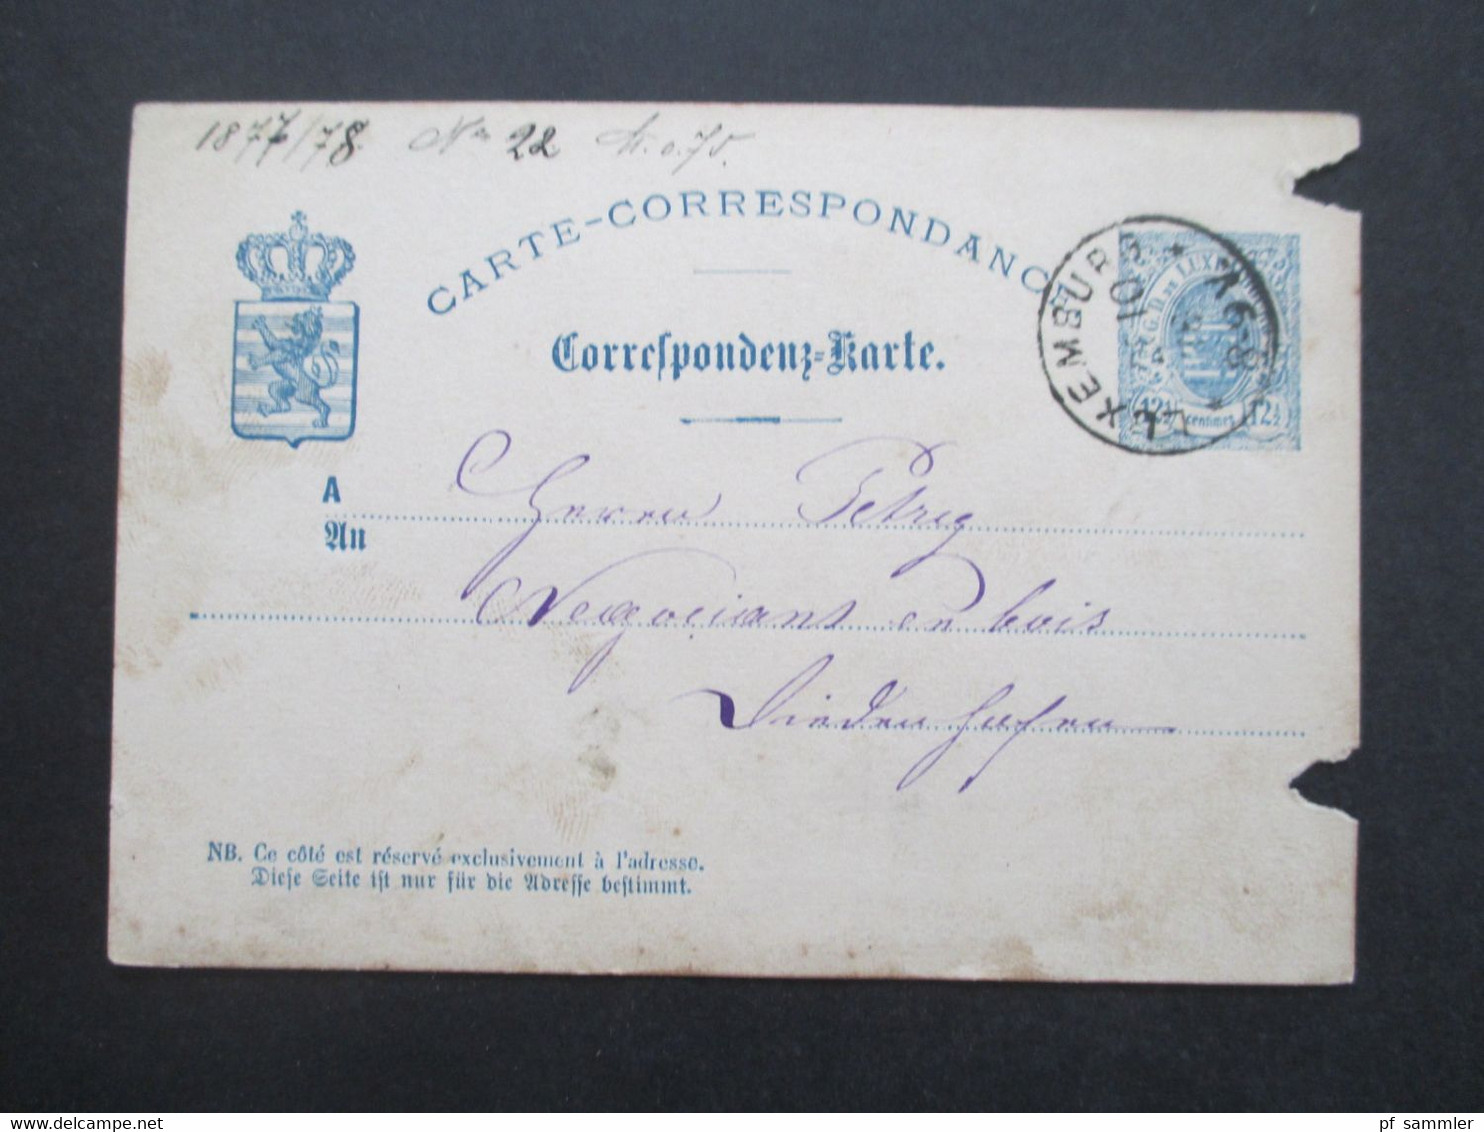 1877/78. No 22
CARTE-CORRESPONDANCE
Correspondenz-Karte.
G. D. DE LUX
12½ centimes 12½
LUXEMBURG
A
An
Herrn Petry
Negociant en bois
Diedenhofen
NB. Ce côté est réservé exclusivement à l'adresse.
Diese Seite ist nur für die Adresse bestimmt.
pf sammler